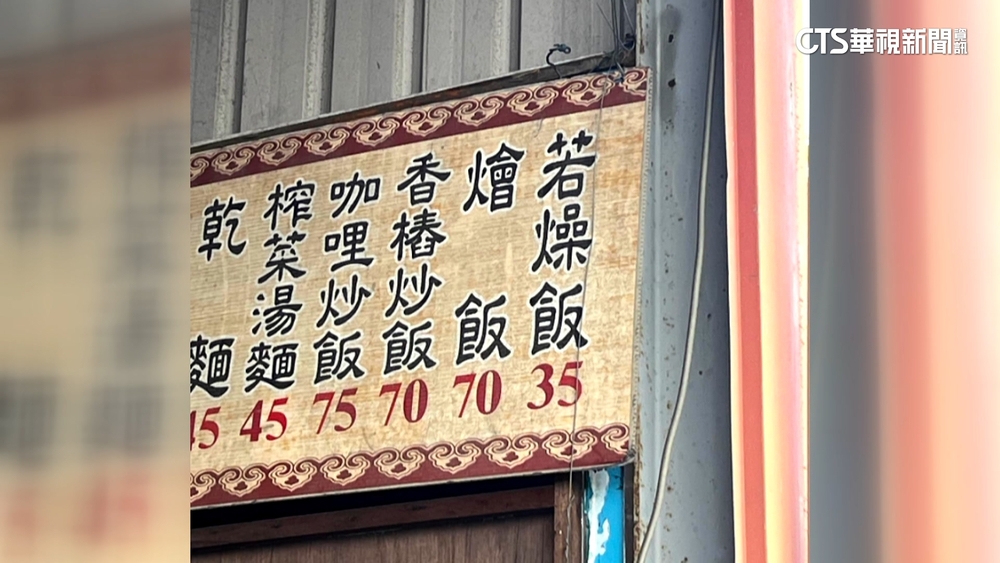 CTS華視新聞資訊
若燥飯 35
燴飯 70
香椿炒飯 70
咖哩炒飯 75
榨菜湯麵 45
乾麵 45